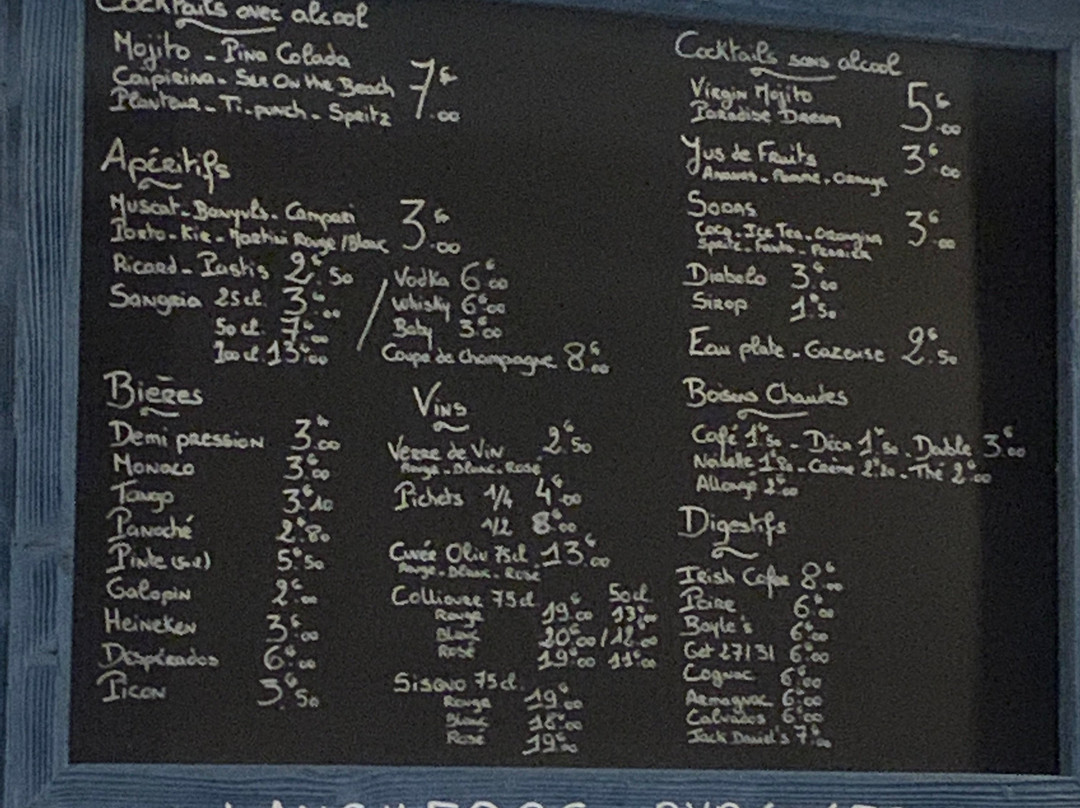 Cocktails avec alcool
Mojito - Pina Colada
Caipirina - Sex On the Beach 7€.00
Planteur - Ti-punch - Spritz
Apéritifs
Muscat - Banyuls - Campari 3€.00
Porto - Kir - Martini Rouge / Blanc
Ricard - Pastis 2€.50
Sangria 25 cl. 3€.00
50 cl. 7€.00
100 cl. 13€.00
Vodka 6€.00
Whisky 6€.00
Baby 3€.00
Coupe de Champagne 8€.00
Bières
Demi pression 3€.00
Monaco 3€.00
Tango 3€.10
Panaché 2€.80
Pinte 5€.50
Galopin 2€.00
Heineken 3€.00
Despérados 6€.00
Picon 3€.50
Vins
Verre de Vin 2€.50
Rouge - Blanc - Rosé
Pichets 1/4 4€.00
1/2 8€.00
Cuvée Oliv 75cl. 13€.00
Rouge - Blanc - Rosé
Collioure 75cl 50cl
Rouge 19€.00 13€.00
Blanc 20€.00 / 12€.00
Rosé 19€.00 11€.00
75cl.
Rouge 19€.00
Blanc 18€.00
Rosé 19€.00
Cocktails sans alcool
Virgin Mojito 5€.00
Paradise Dream
Jus de Fruits 3€.00
Ananas - Pomme - Orange
Sodas
Coca - Ice Tea - Orangina 3€.00
Sprite - Fanta - Perrier
Diabolo 3€.00
Sirop 1€.50
Eau plate - Gazeuse 2€.50
Boisons Chaudes
Café 1€.50 - Déca 1€.50 - Double 3€.00
Noisette 1€.80 - Crème 2€.20 - Thé 2€.00
Allongé 2€.00
Digestifs
Irish Cofee 8€.00
Poire 6€.00
Bayle's 6€.00
Get 27/31 6€.00
Cognac 6€.00
Armagnac 6€.00
Calvados 6€.00
Jack Daniel's 7€.00